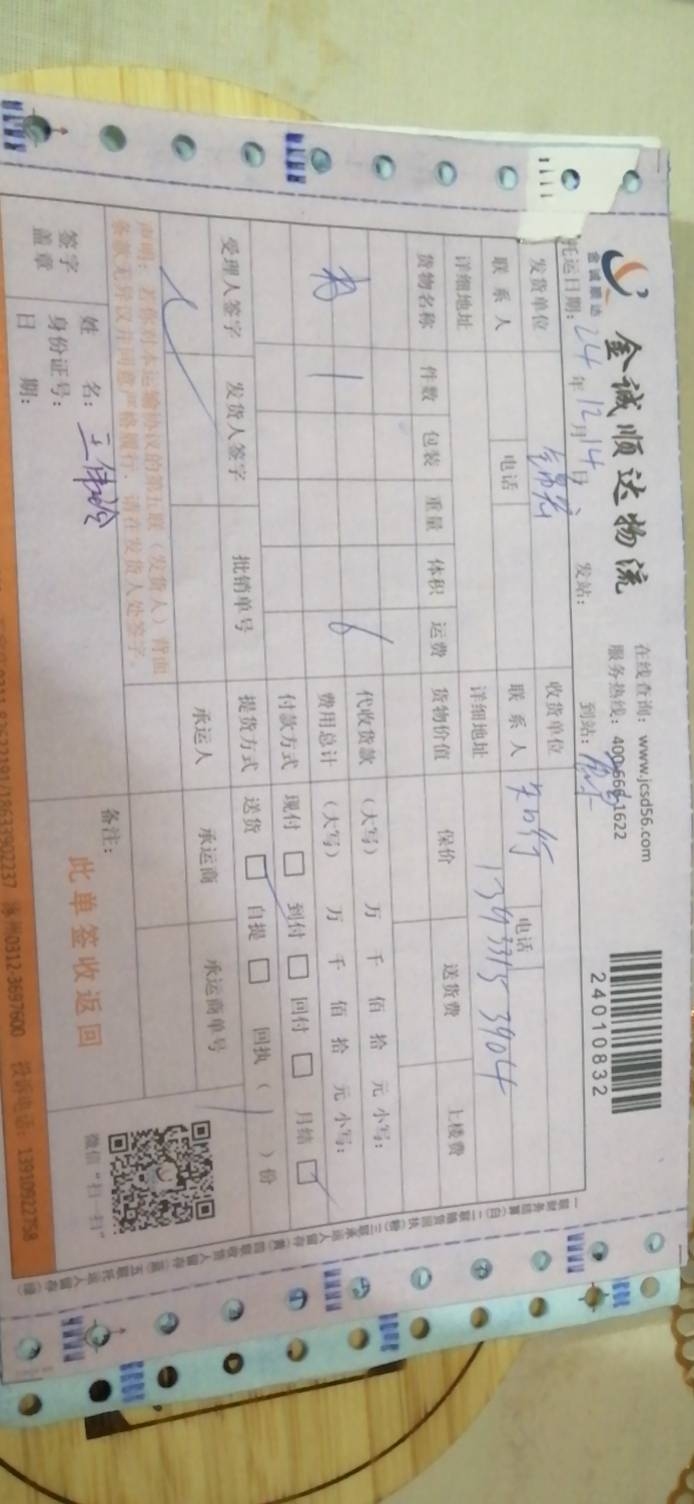 金诚顺达
金诚顺达物流
在线查询：www.jcsd56.com
服务热线：400-666-1622
24010832
托运日期：24年12月14日
发站：
到站：
发货单位
收货单位
联系人
电话
联系人
电话
13933153904
详细地址
详细地址
货物名称 件数 包装 重量 体积 运费 货物价值 保价 送货费 上楼费
代收货款 （大写） 万 千 佰 拾 元 小写：
1
费用总计 （大写） 万 千 佰 拾 元 小写：
付款方式 现付 □ 到付 □ 回付 □ 月结 □
受理人签字 发货人签字 批销单号 提货方式 送货 □ 自提 □ 回执（ ）份
承运人 承运商 承运商单号
声明：若你对本运输协议的第五联（发货人）背面
条款无异议并同意严格履行，请在发货人处签字。
签字
盖章
姓 名：
身份证号：
日 期：
备注：
此单签收返回
微信“扫一扫”
0312 3697600 投诉电话：13910922758